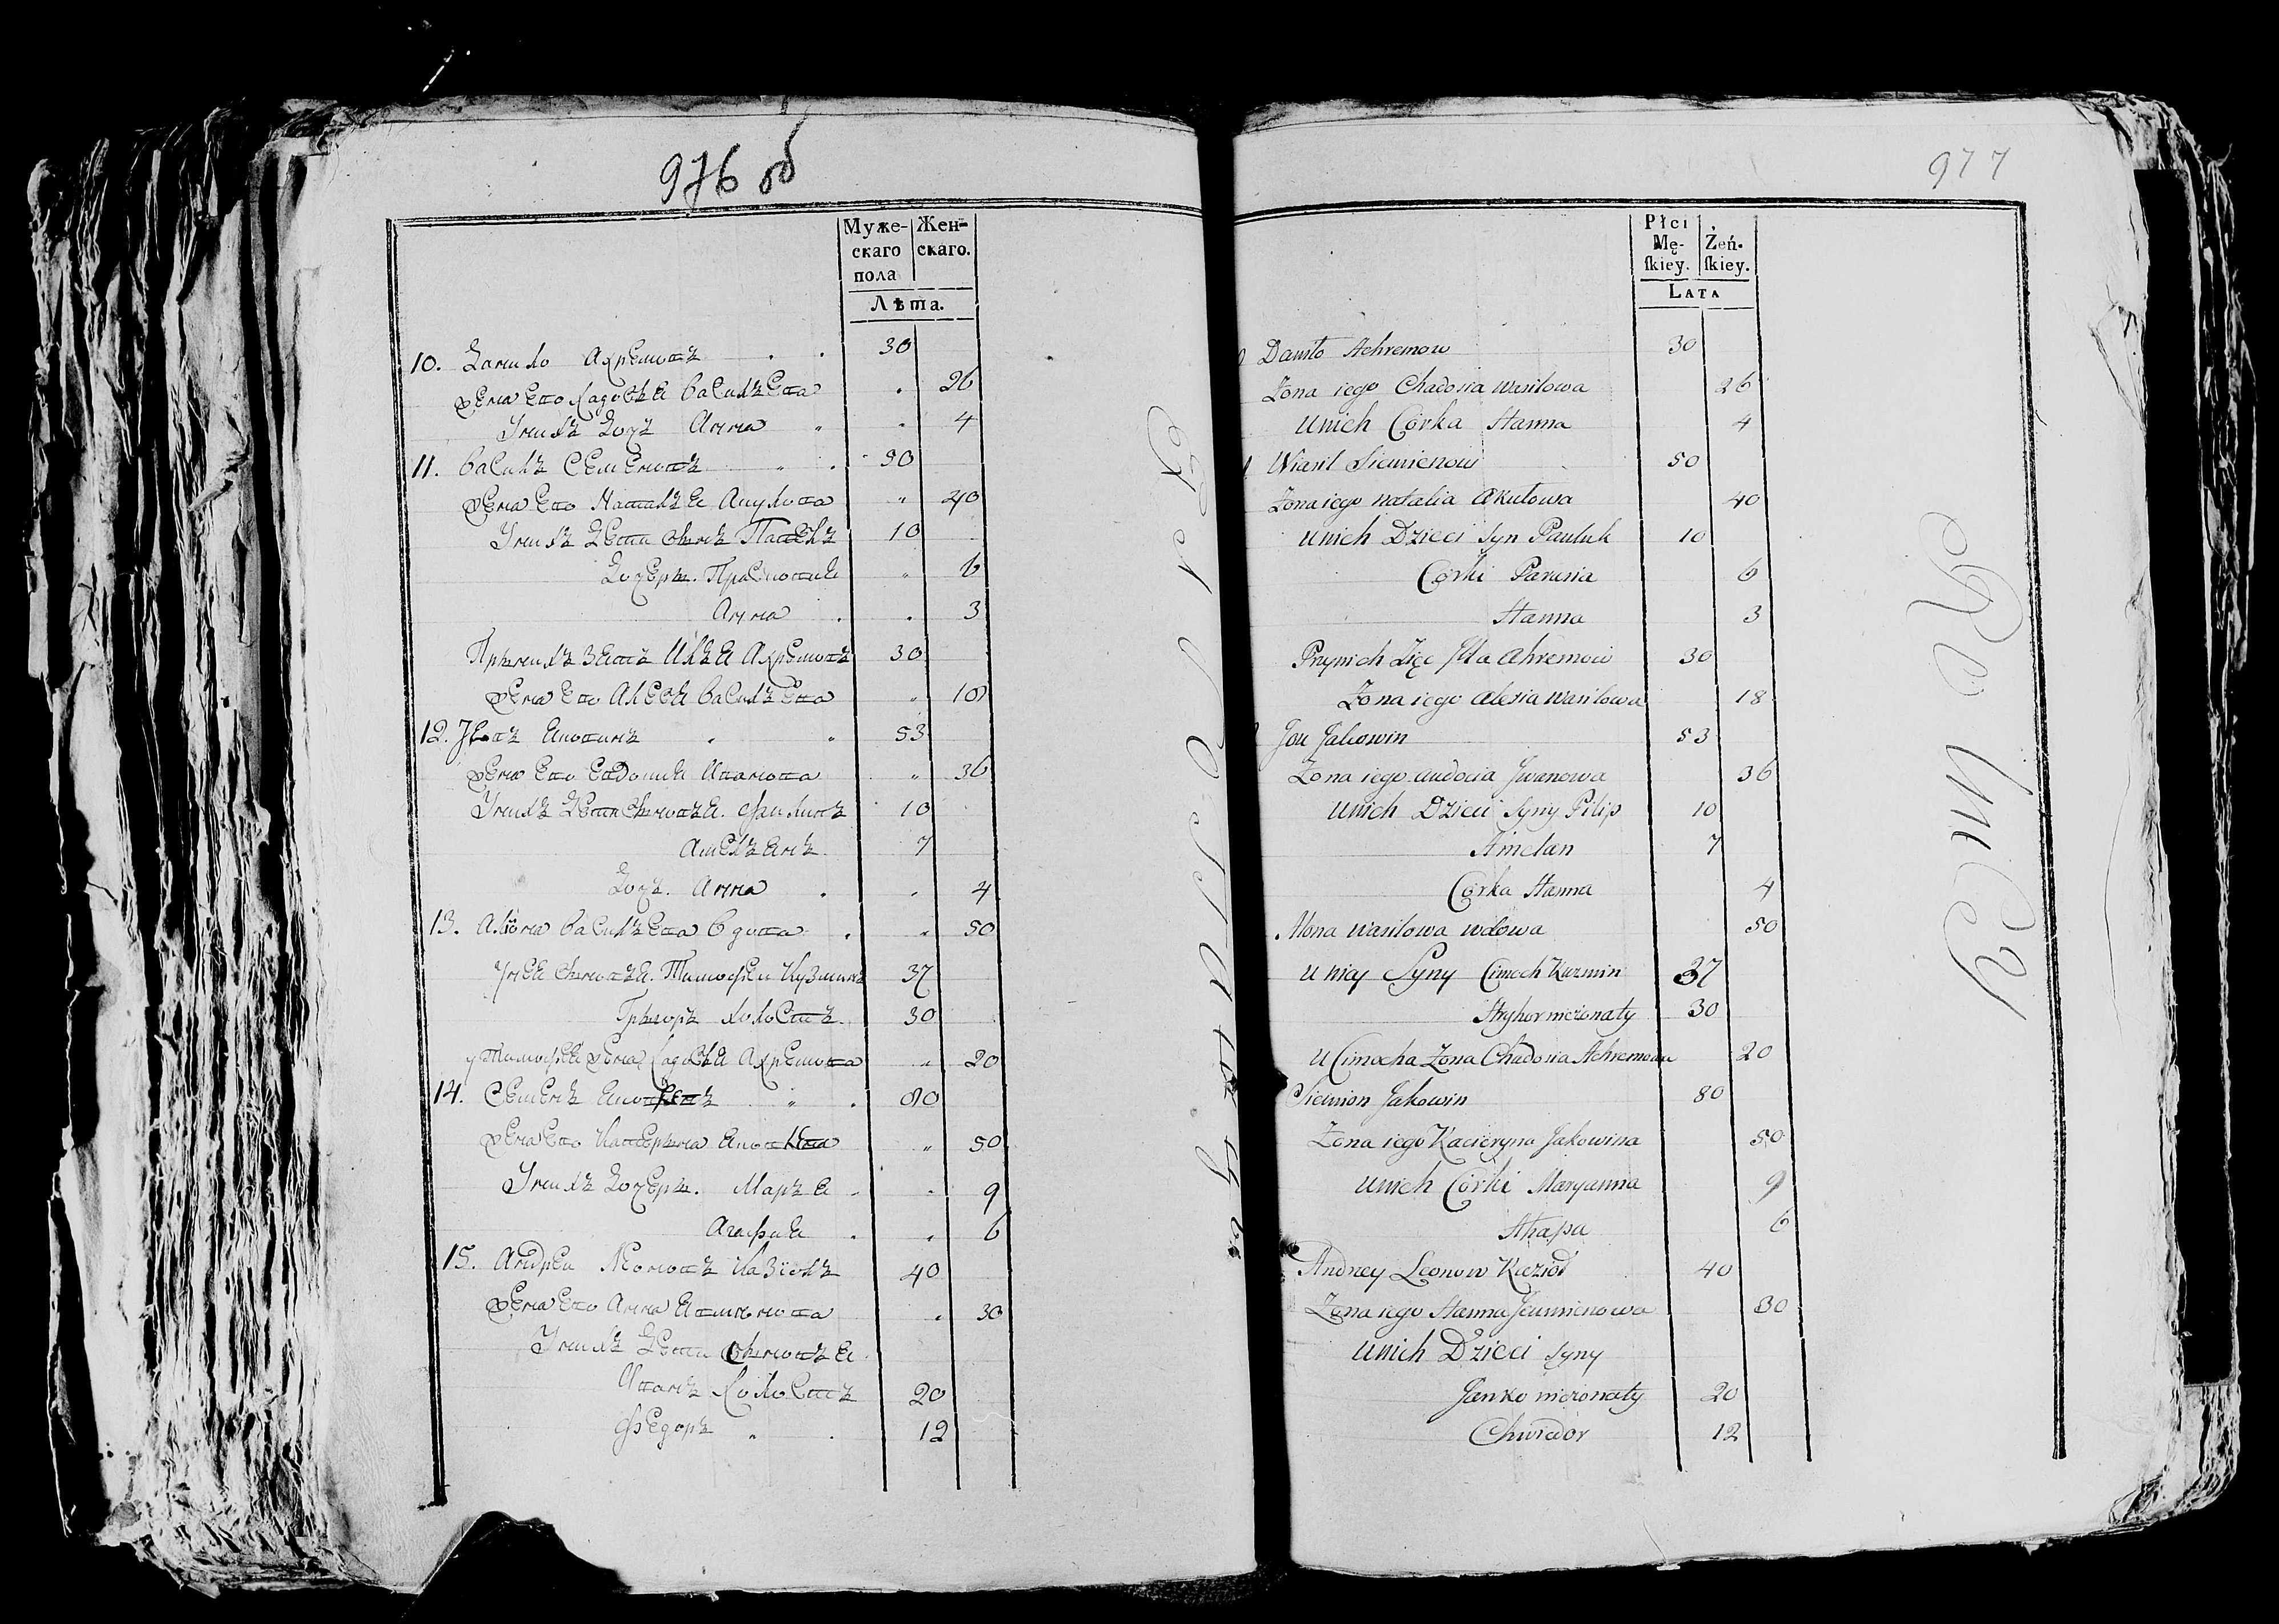 976 об
Муже-
скаго
пола
Жен-
скаго.
Лѣта.
10. Данило Ахремовъ 30
жена Его Ходосья Васильева 26
Унихъ Дочь Анна 4
11. Василь Семеновъ 50
жена Его Наталья Акулова 40
Унихъ Дети сынъ Павелъ 10
Дочери. Прасковия 6
Анна 3
Прынихъ Зять Илья Ахремовъ 30
жена Его Алесья Васильева 18
12. Яковинъ 53
жена Его Евдокия Иванова 36
Унихъ Дети сыновья. Филипъ 10
Амельянъ 7
Дочь. Анна 4
13. Алёна Васильева вдова 50
Унея сыновья. Тимофей Кузминъ 37
Грыгоръ холостъ 30
у Тимофея жена Ходосья Ахремова 20
14. Семенъ 80
жена Его Катерына 50
Унихъ Дочери. Марья 9
Агафия 6
15. Андрей Леоновъ Казіолъ 40
жена Его Анна 30
Унихъ Дети сыновья
Иванъ холостъ 20
Федоръ 12
977
Płci
Mę-
ſkiey.
Żeń-
ſkiey.
Lata
Daniło Achremow 30
Żona iego Chadosia Wasilowa 26
Unich Córka Hanna 4
Wasil Siemienow 50
Żona iego Natalia Akułowa 40
Unich Dzieci Syn Pauluk 10
Córki Parusia 6
Hanna 3
Prynich Zięc Jlla Ahremow 30
Żona iego Alesia Wasilowa 18
Jou Jakowin 53
Żona iego Audocia Jwanowa 36
Unich Dzieci Syny Pilip 10
Amelan 7
Córka Hanna 4
Alona Wasilowa wdowa 50
U niey Syny Cimoch Kuzmin 37
Hryhor nieżonaty 30
U Cimocha Żona Chadosia Achremowa 20
Siemion Jakowin 80
Żona iego Kacieryna Jakowina 50
Unich Córki Maryanna 9
Ahapa 6
Andrey Leonow Kazioł 40
Żona iego Hanna 30
Unich Dzieci Syny
Janko nieżonaty 20
Chwiedor 12